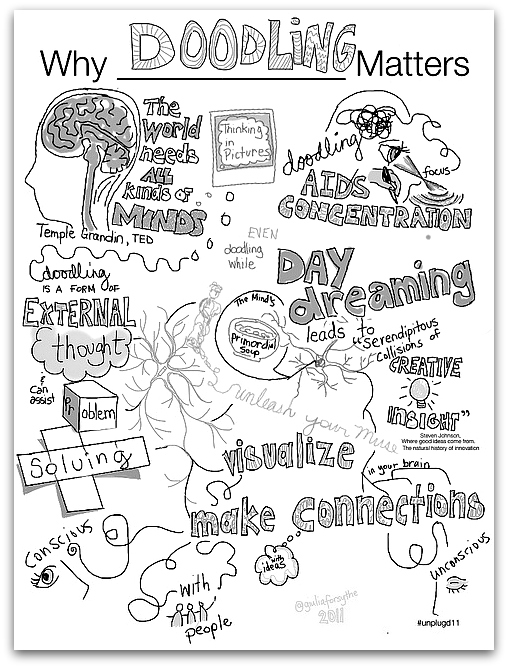 Why DOODLING Matters
The
World
needs
ALL
kinds of
MINDS
Temple Grandin, TED
Thinking
in
Pictures
doodling
AIDS
CONCENTRATION
focus
EVEN
doodling
while
DAY
dreaming
leads to
"Serendipitous
Collisions of
CREATIVE
INSIGHT"
Steven Johnson,
Where good ideas come from.
The natural history of innovation
doodling
IS A FORM OF
EXTERNAL
thought
& can
assist
Problem
Solving
The Mind's
Primordial
Soup
unleash your muse
visualize
in your brain
make connections
with
ideas
Conscious
with
people
unconscious
@giuliaforsythe
2011
#unplugd11